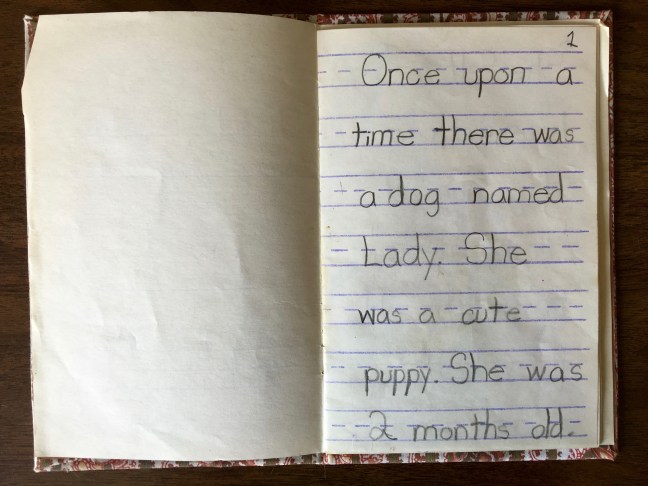 1
Once upon a
time there was
a dog named
Lady. She
was a cute
puppy. She was
2 months old.